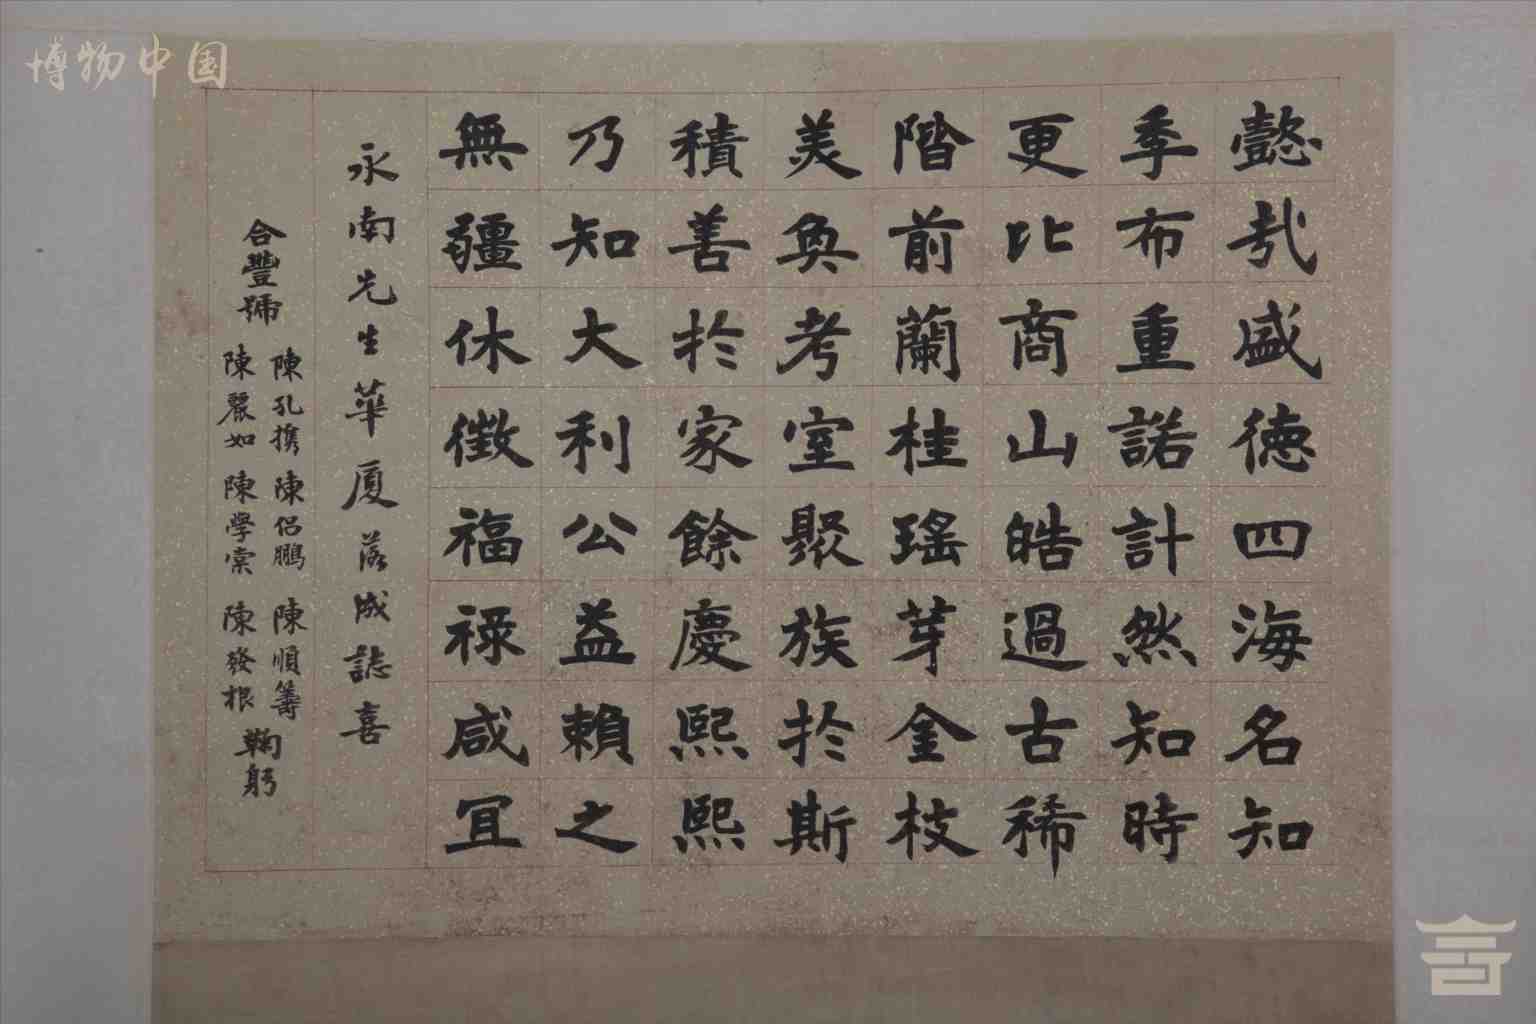 博物中国
懿哉盛德四海名知
季布重諾計然知時
更比商山皓過古稀
階前蘭桂瑤芽金枝
美奐考室聚族於斯
積善於家餘慶熙熙
乃知大利公益賴之
無疆休徵福祿咸宜
永南先生華厦落成誌喜
合豐號
陳孔攜 陳侶鵬 陳順籌
陳麗如 陳學棠 陳發根
鞠躬